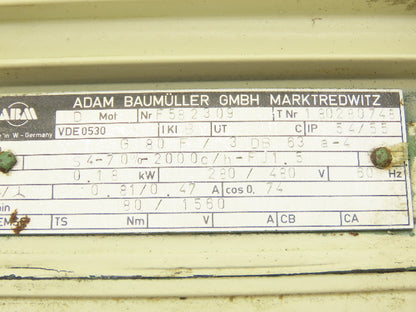 ABM ADAM BAUMÜLLER GMBH MARKTREDWITZ
D Mot Nr F582309 T Nr 180280748
in W - Germany VDE 0530 I KI UT C IP 54/55
G 80 F / 3 DB 63 a-4
S4-70%-2000c/h-FJ1.5
0.18 kW 280 / 480 V 60 Hz
0.81/0.47 A cos 0, 74
min 80 / 1560
TS Nm V A CB CA